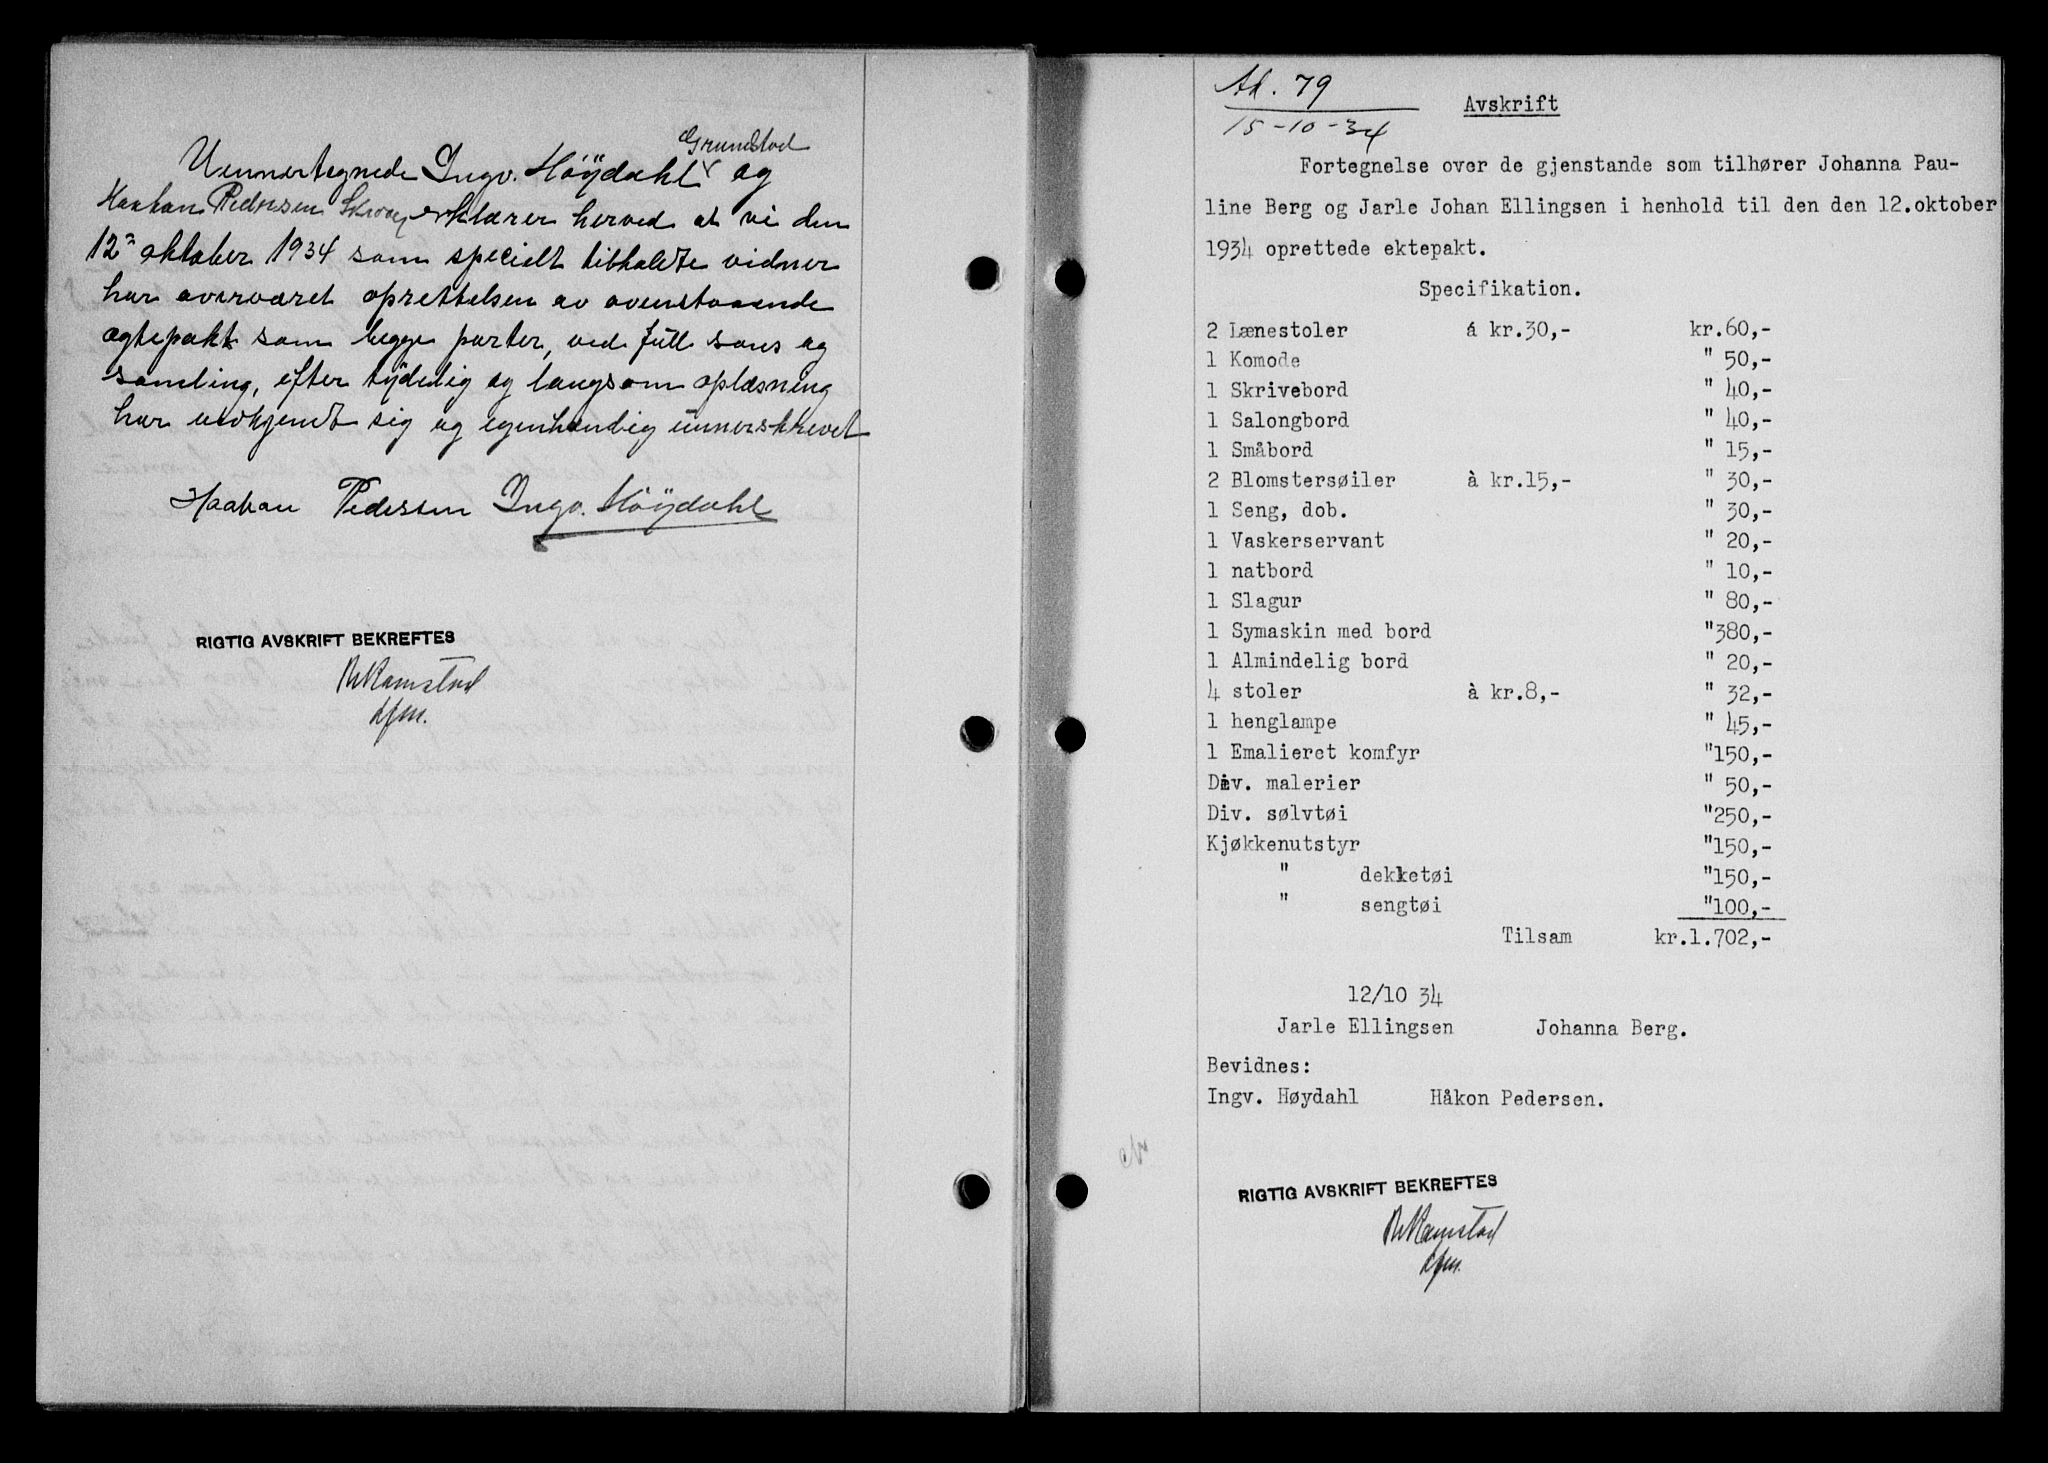 Grunstad
Unnertegnede Ingv. Höÿdahl og
Haakon Pedersen Skrova erklærer herved at vi den
12" oktober 1934 som specielt tilkaldte vidner
har overværet oprettelsen av ovenstaaende
egtepakt som begge parter, ved full sans og
samling, efter tydelig og langsom oplæsning
har vedkjendt sig og egenhendig unnerskrevet
Haakon Pedersen Ingv. Höÿdahl
RIGTIG AVSKRIFT BEKREFTES
Ramstad
Ad. 79
15-10-34
Avskrift
Fortegnelse over de gjenstande som tilhører Johanna Pau-
line Berg og Jarle Johan Ellingsen i henhold til den den 12.oktober
1934 oprettede ektepakt.
Specifikation.
2 Lænestoler á kr.30,- kr.60,-
1 Komode " 50,-
1 Skrivebord " 40,-
1 Salongbord " 40,-
1 Småbord " 15,-
2 Blomstersøiler à kr.15,- " 30,-
1 Seng, dob. " 30,-
1 Vaskerservant " 20,-
1 natbord " 10,-
1 Slagur " 80,-
1 Symaskin med bord "380,-
1 Almindelig bord " 20,-
4 stoler à kr.8,- " 32,-
1 henglampe " 45,-
1 Emalieret komfyr "150,-
Div. malerier " 50,-
Div. sølvtøi "250,-
Kjøkkenutstyr "150,-
" dekketøi "150,-
" sengtøi "100,-
Tilsam kr.1.702,-
12/10 34
Jarle Ellingsen Johanna Berg.
Bevidnes:
Ingv. Høydahl Håkon Pedersen.
RIGTIG AVSKRIFT BEKREFTES
Ramstad